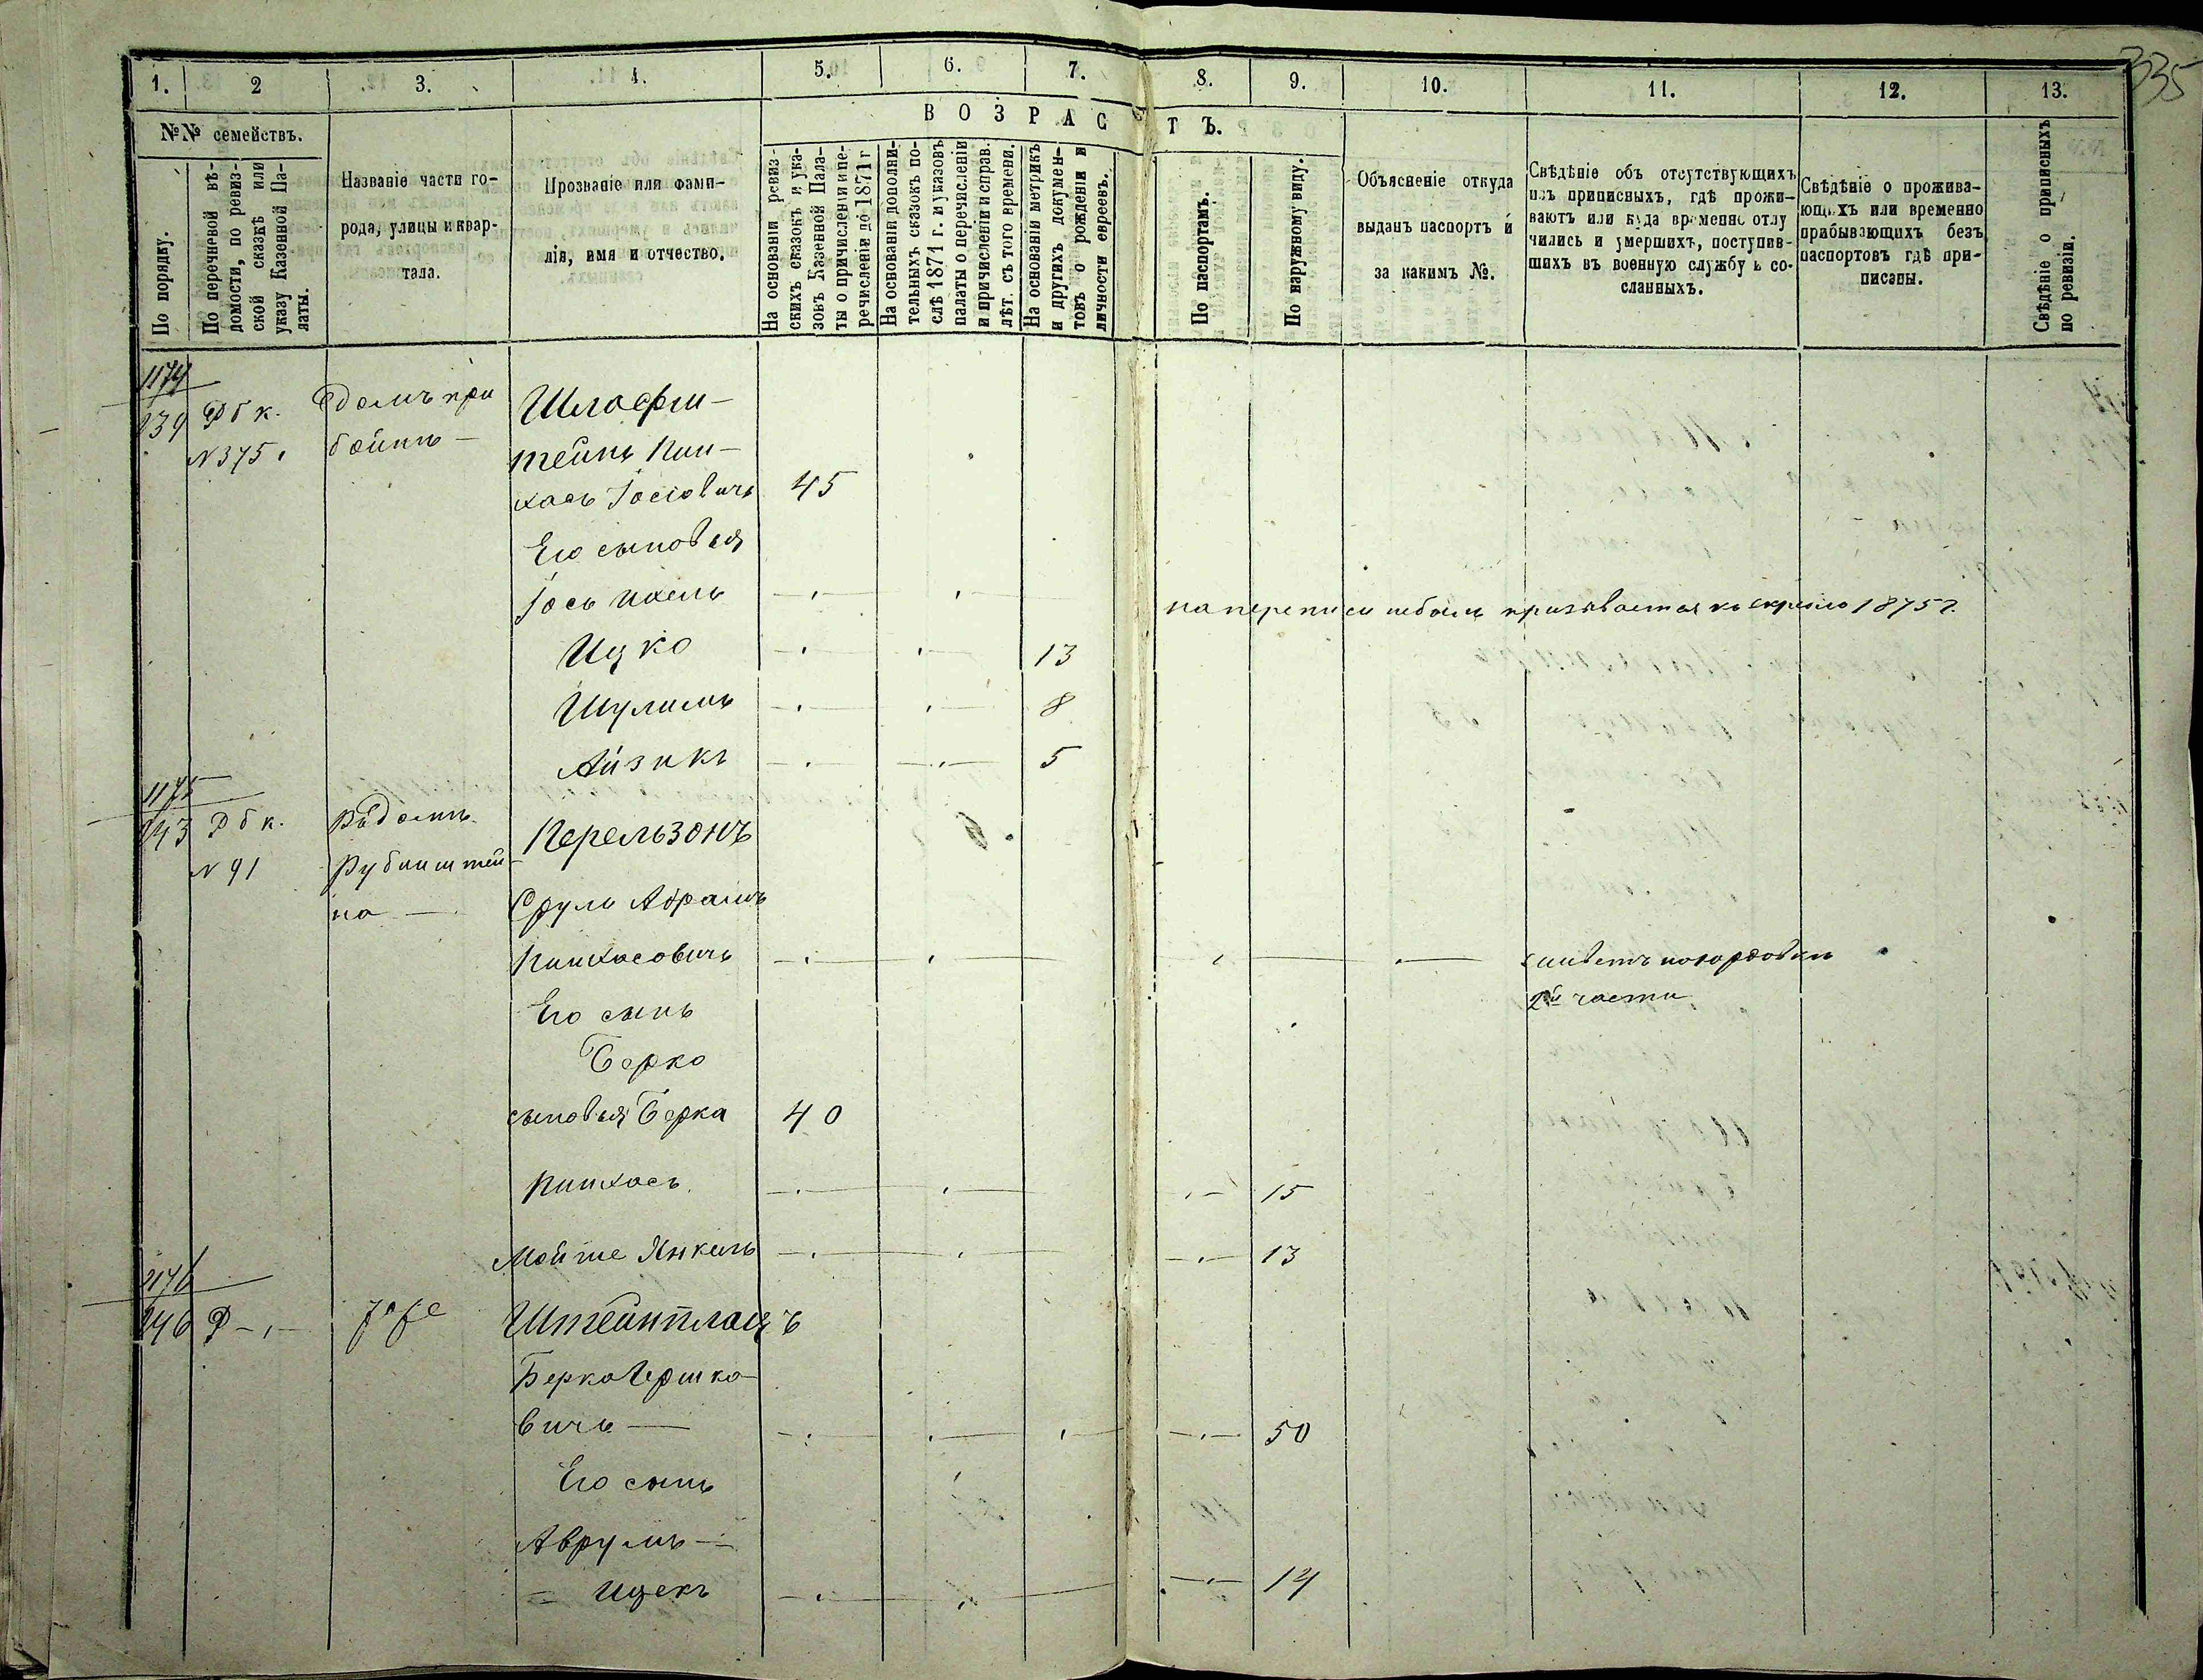 335
1. 2 3. 4. 5. 6. 7. 8. 9. 10. 11. 12. 13.
№№ семействъ.
По порядку.
По перечневой вѣ-
домости, по ревиз-
ской сказкѣ или
указу Казенной Па-
латы.
Названіе части го-
рода, улицы и квар-
тала.
Прозваніе или фами-
лія, имя и отчество.
ВОЗРАСТЪ.
На основаніи ревиз-
скихъ сказокъ и ука-
зовъ Казенной Пала-
ты о причисленіи и пе-
речисленіи до 1871 г
На основаніи дополни-
тельныхъ сказокъ по-
слѣ 1871 г. и указовъ
палаты о перечисленіи
и причисленіи и справ.
лѣт. съ того времени.
На основаніи метрикъ
и другихъ докумен-
товъ о рожденіи и
личности евреевъ.
По паспортамъ.
По наружному виду.
Объясненіе откуда
выданъ паспортъ и
за какимъ №.
Свѣдѣніе объ отсутствующихъ
изъ приписныхъ, гдѣ прожи-
ваютъ или куда временно отлу
чились и умершихъ, поступив-
шихъ въ военную службу и со-
сланныхъ.
Свѣдѣніе о прожива-
ющихъ или временно
прибывающихъ безъ
паспортовъ гдѣ при-
писаны.
Свѣдѣніе о приписныхъ
по ревизіи.
1174
239 Р б к. домъ при Шлафш-
№ 375 бойнѣ — тейнъ Пин-
хасъ Іосіовичъ 45
Его сыновья
Іось Ихель на переписи небылъ призывается къ 1875 г.
Ицко 13
Шулимъ 8
Айзикъ 5
1175
243 Р б к. Въ домѣ Перельзонъ
№ 91 Рубинштей
на — Сруль Абрамъ
Пинхасовичъ живетъ
2й части
Его сынъ
Берко
сыновья Берка 40
Пинхасъ 15
Мойше Янкель 13
1176
246 Р —„— Штейнплацъ
Берко Гершко-
вичъ — 50
Его сынъ
Аврумъ —
= Ицекъ 14